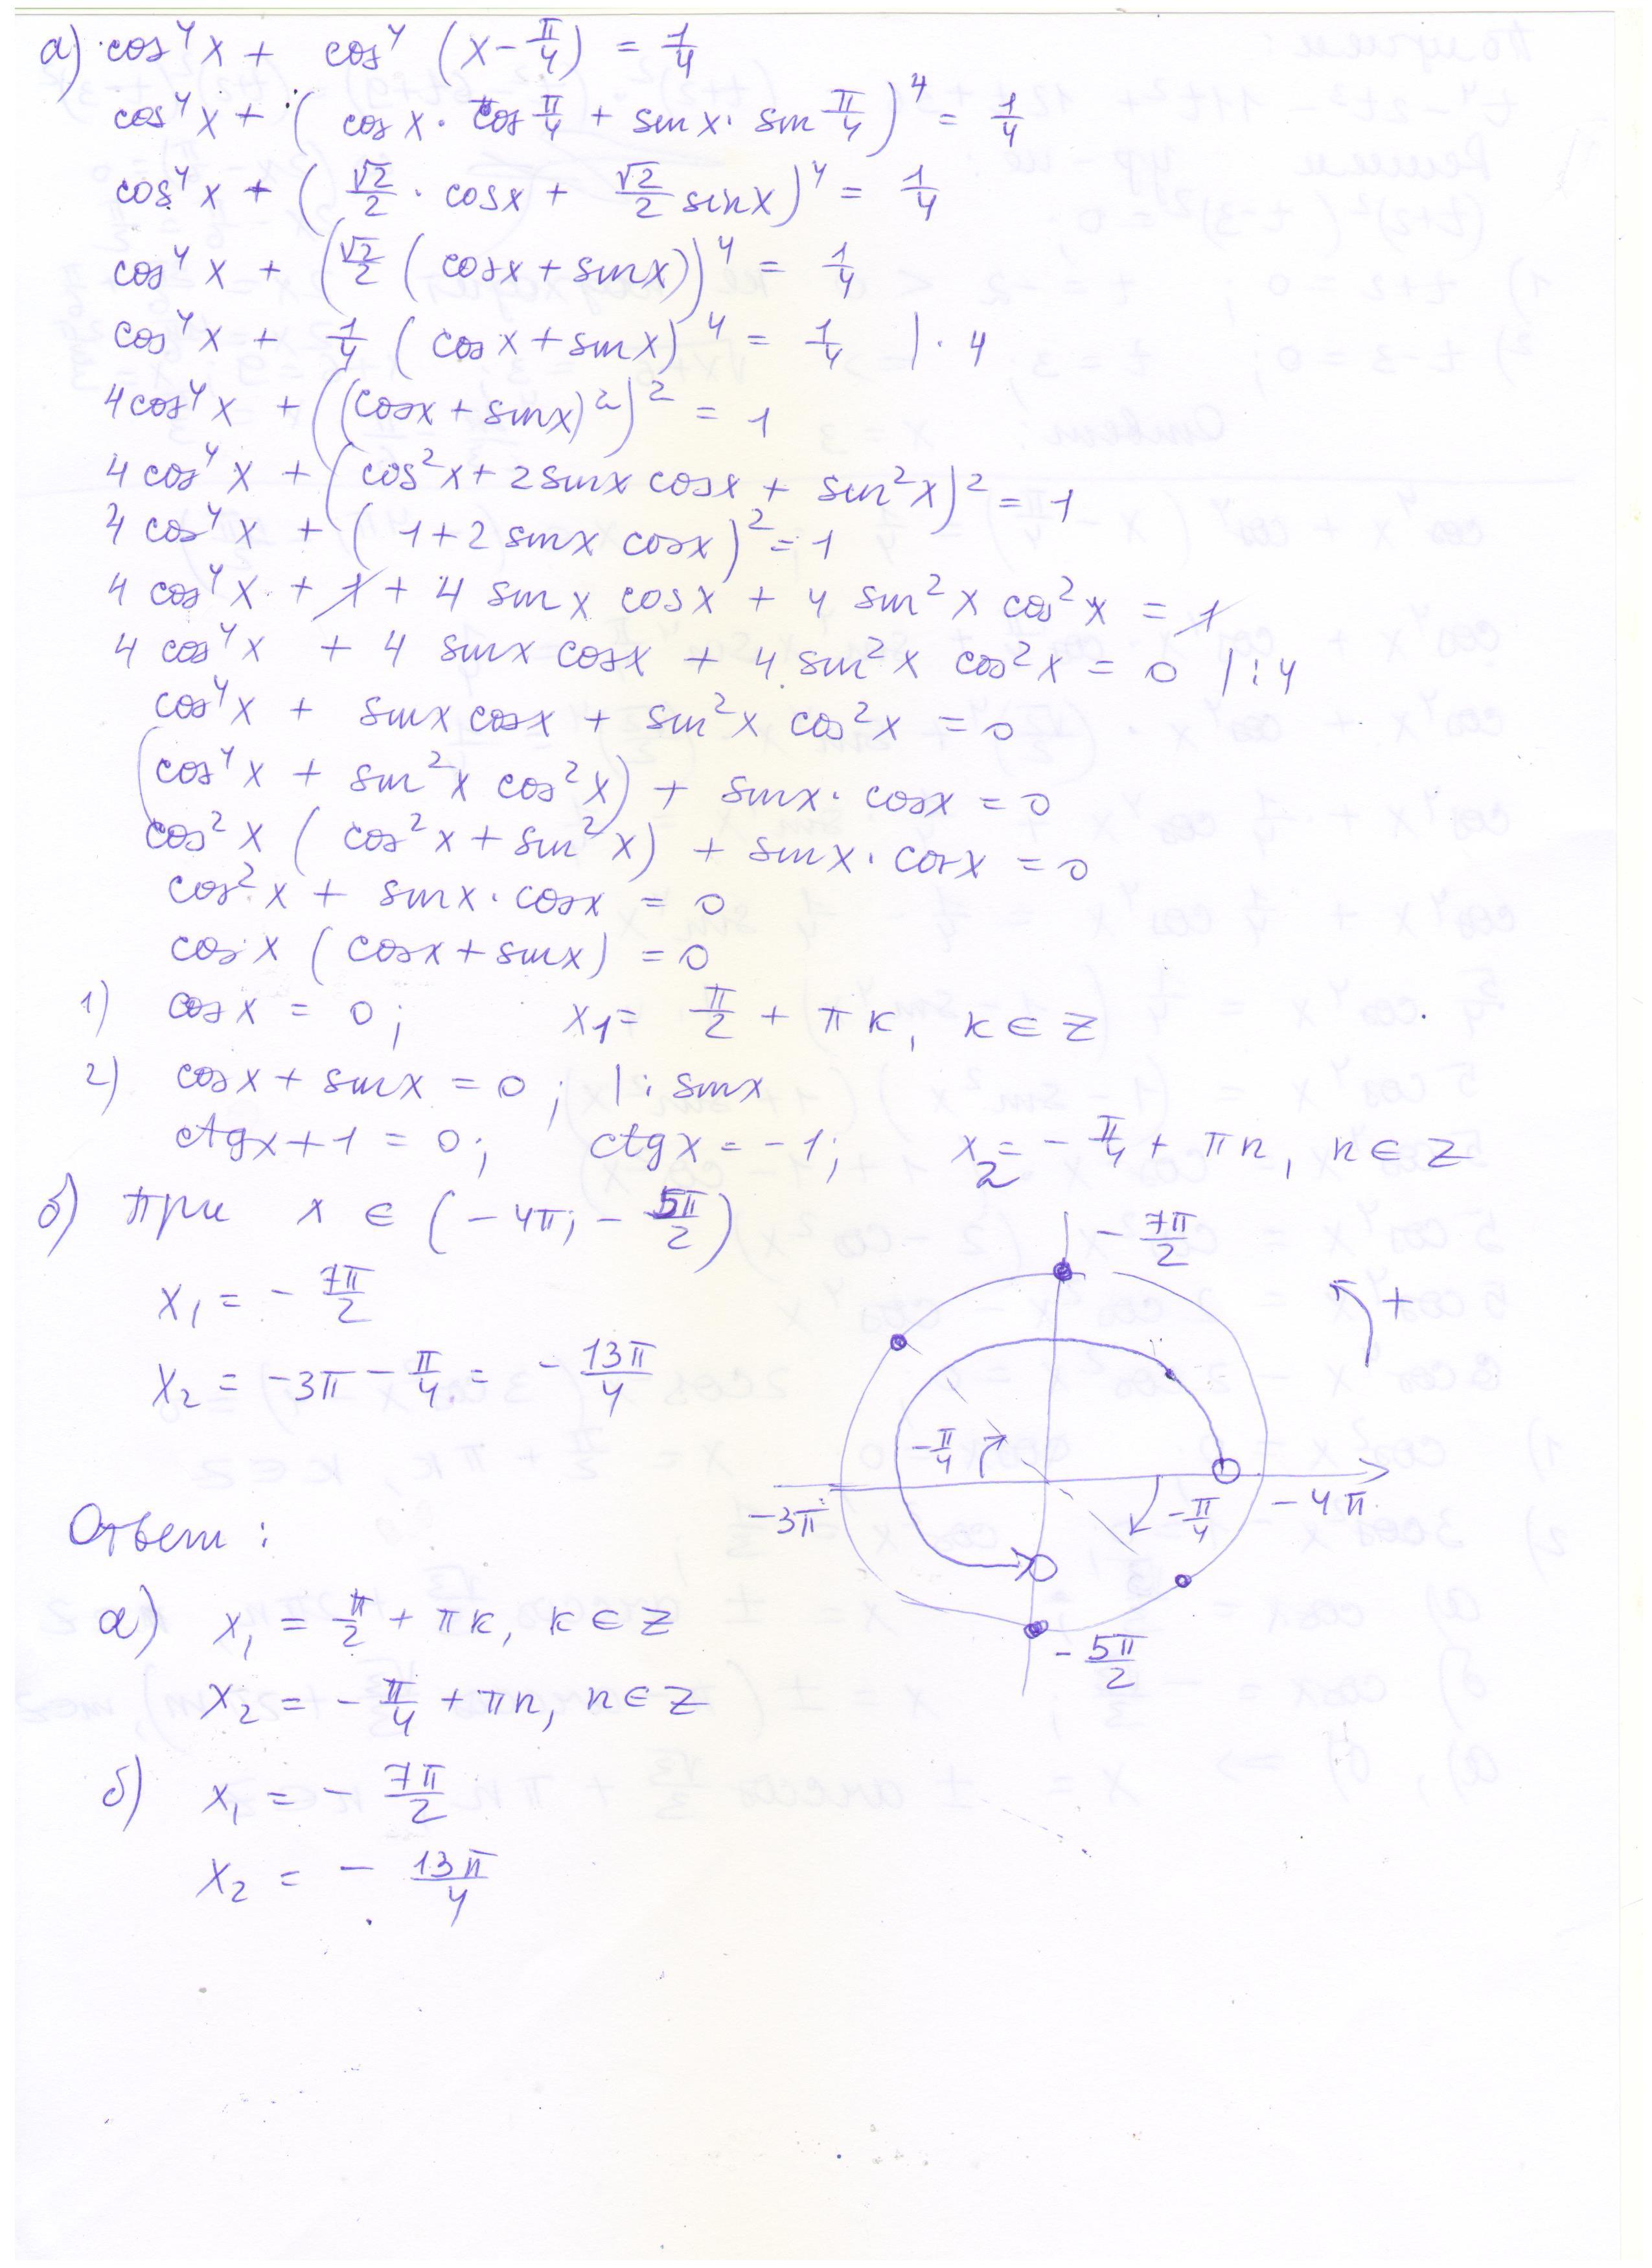 а) cos⁴x + cos⁴(x - π/4) = 1/4
cos⁴x + (cosx · cos π/4 + sinx · sin π/4)⁴ = 1/4
cos⁴x + (√2/2 · cosx + √2/2 sinx)⁴ = 1/4
cos⁴x + (√2/2 (cosx + sinx))⁴ = 1/4
cos⁴x + 1/4 (cosx + sinx)⁴ = 1/4 | · 4
4cos⁴x + ((cosx + sinx)²)² = 1
4cos⁴x + (cos²x + 2sinx cosx + sin²x)² = 1
4cos⁴x + (1 + 2sinx cosx)² = 1
4cos⁴x + 1 + 4 sinx cosx + 4 sin²x cos²x = 1
4cos⁴x + 4 sinx cosx + 4 sin²x cos²x = 0 | : 4
cos⁴x + sinx cosx + sin²x cos²x = 0
(cos⁴x + sin²x cos²x) + sinx · cosx = 0
cos²x (cos²x + sin²x) + sinx · cosx = 0
cos²x + sinx · cosx = 0
cosx (cosx + sinx) = 0
1) cosx = 0; x₁ = π/2 + πk, k ∈ Z
2) cosx + sinx = 0; | : sinx
ctgx + 1 = 0; ctgx = -1; x₂ = -π/4 + πn, n ∈ Z
б) При x ∈ (-4π; -5π/2)
x₁ = -7π/2
x₂ = -3π - π/4 = -13π/4
-7π/2
+
-π/4
-3π
-π/4
-4π
-5π/2
Ответ:
а) x₁ = π/2 + πk, k ∈ Z
x₂ = -π/4 + πn, n ∈ Z
б) x₁ = -7π/2
x₂ = -13π/4